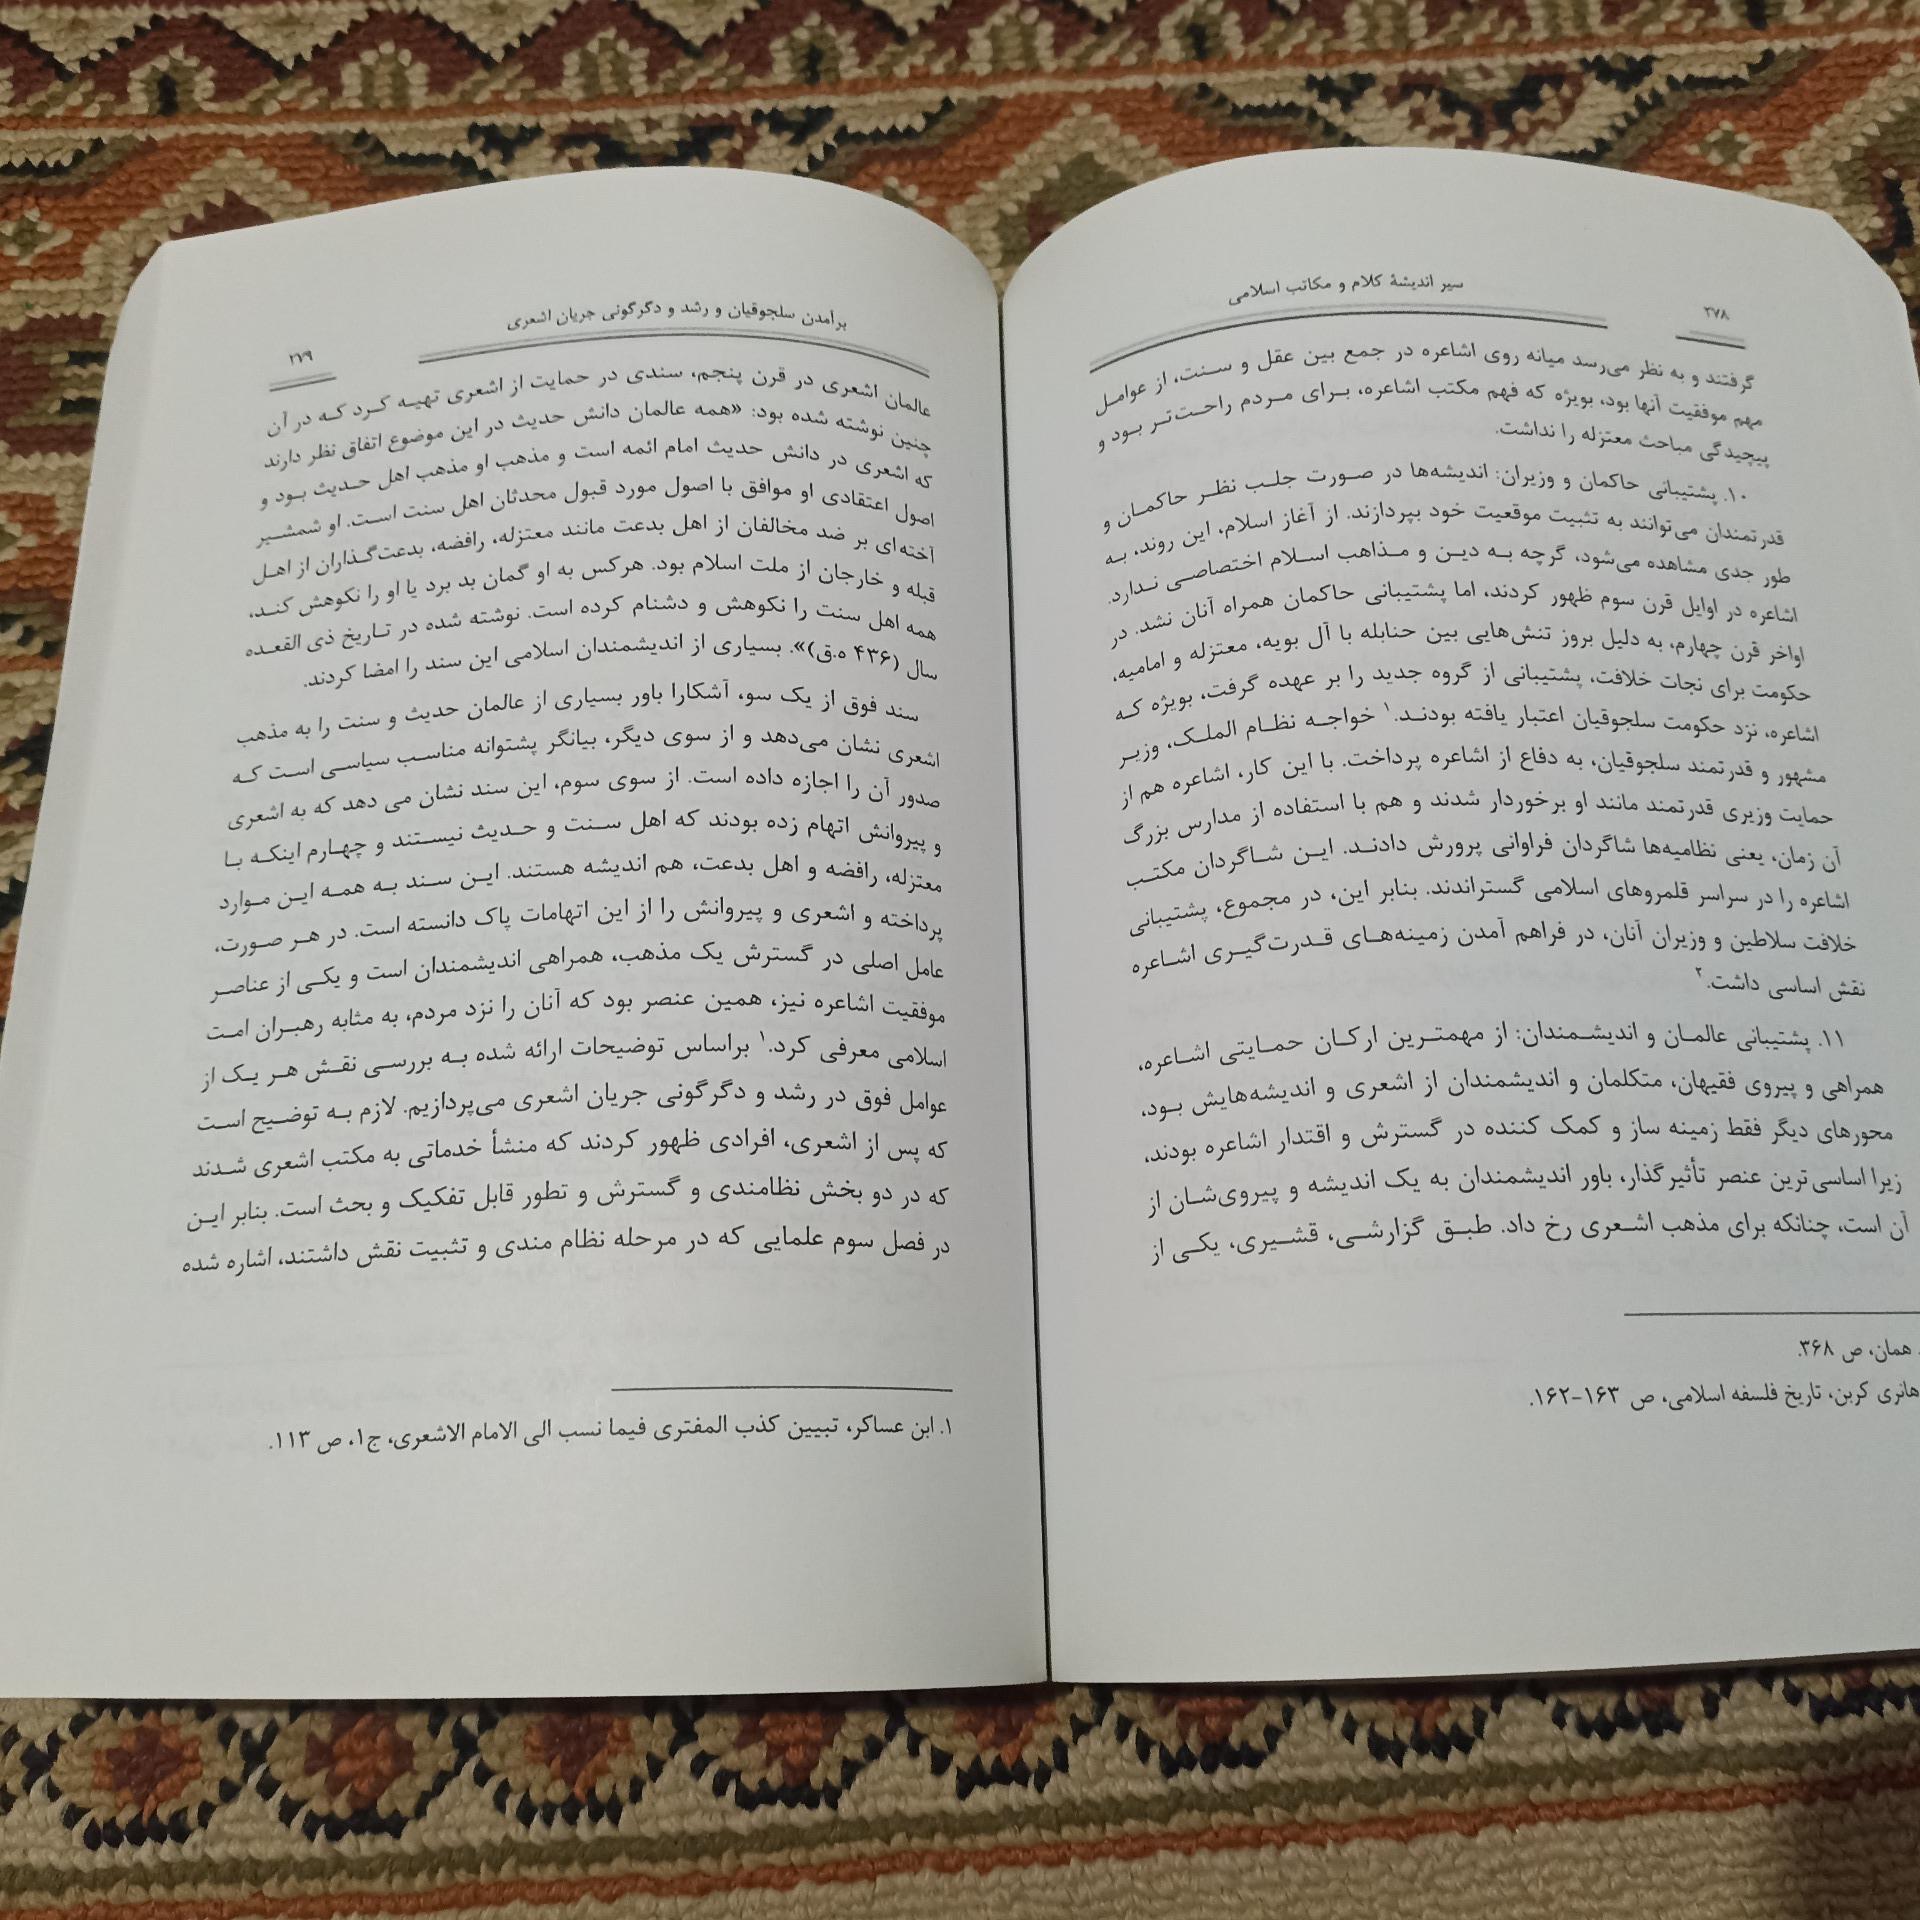 ۲۷۸
سیر اندیشهٔ کلام و مکاتب اسلامی
گرفتند و به نظر می‌رسد میانه روی اشاعره در جمع بین عقل و سنت، از عوامل
مهم موفقیت آنها بود، بویژه که فهم مکتب اشاعره، برای مردم راحت‌تر بود و
پیچیدگی مباحث معتزله را نداشت.
۱۰. پشتیبانی حاکمان و وزیران: اندیشه‌ها در صورت جلب نظر حاکمان و
قدرتمندان می‌توانند به تثبیت موقعیت خود بپردازند. از آغاز اسلام، این روند، به
طور جدی مشاهده می‌شود، گرچه به دین و مذاهب اسلام اختصاصی ندارد.
اشاعره در اوایل قرن سوم ظهور کردند، اما پشتیبانی حاکمان همراه آنان نشد. در
اواخر قرن چهارم، به دلیل بروز تنش‌هایی بین حنابله با آل بویه، معتزله و امامیه،
حکومت برای نجات خلافت، پشتیبانی از گروه جدید را بر عهده گرفت، بویژه که
اشاعره، نزد حکومت سلجوقیان اعتبار یافته بودند.۱ خواجه نظام الملک، وزیر
مشهور و قدرتمند سلجوقیان، به دفاع از اشاعره پرداخت. با این کار، اشاعره هم از
حمایت وزیری قدرتمند مانند او برخوردار شدند و هم با استفاده از مدارس بزرگ
آن زمان، یعنی نظامیه‌ها شاگردان فراوانی پرورش دادند. این شاگردان مکتب
اشاعره را در سراسر قلمروهای اسلامی گستراندند. بنابر این، در مجموع، پشتیبانی
خلافت سلاطین و وزیران آنان، در فراهم آمدن زمینه‌های قدرت‌گیری اشاعره
نقش اساسی داشت.۲
۱۱. پشتیبانی عالمان و اندیشمندان: از مهمترین ارکان حمایتی اشاعره،
همراهی و پیروی فقیهان، متکلمان و اندیشمندان از اشعری و اندیشه‌هایش بود،
محورهای دیگر فقط زمینه ساز و کمک کننده در گسترش و اقتدار اشاعره بودند،
زیرا اساسی‌ترین عنصر تأثیرگذار، باور اندیشمندان به یک اندیشه و پیروی‌شان از
آن است، چنانکه برای مذهب اشعری رخ داد. طبق گزارشی، قشیری، یکی از
همان، ص ۳۶۸.
هانری کربن، تاریخ فلسفه اسلامی، ص ۱۶۳-۱۶۲.
برآمدن سلجوقیان و رشد و دگرگونی جریان اشعری
۲۷۹
عالمان اشعری در قرن پنجم، سندی در حمایت از اشعری تهیه کرد که در آن
چنین نوشته شده بود: «همه عالمان دانش حدیث در این موضوع اتفاق نظر دارند
که اشعری در دانش حدیث امام ائمه است و مذهب او مذهب اهل حدیث بود و
اصول اعتقادی او موافق با اصول مورد قبول محدثان اهل سنت است. او شمشیر
آخته‌ای بر ضد مخالفان از اهل بدعت مانند معتزله، رافضه، بدعت‌گذاران از اهل
قبله و خارجان از ملت اسلام بود. هرکس به او گمان بد برد یا او را نکوهش کند،
همه اهل سنت را نکوهش و دشنام کرده است. نوشته شده در تاریخ ذی القعده
سال (۴۳۶ ه.ق)». بسیاری از اندیشمندان اسلامی این سند را امضا کردند.
سند فوق از یک سو، آشکارا باور بسیاری از عالمان حدیث و سنت را به مذهب
اشعری نشان می‌دهد و از سوی دیگر، بیانگر پشتوانه مناسب سیاسی است که
صدور آن را اجازه داده است. از سوی سوم، این سند نشان می دهد که به اشعری
و پیروانش اتهام زده بودند که اهل سنت و حدیث نیستند و چهارم اینکه با
معتزله، رافضه و اهل بدعت، هم اندیشه هستند. این سند به همه این موارد
پرداخته و اشعری و پیروانش را از این اتهامات پاک دانسته است. در هر صورت،
عامل اصلی در گسترش یک مذهب، همراهی اندیشمندان است و یکی از عناصر
موفقیت اشاعره نیز، همین عنصر بود که آنان را نزد مردم، به مثابه رهبران امت
اسلامی معرفی کرد.۱ براساس توضیحات ارائه شده به بررسی نقش هر یک از
عوامل فوق در رشد و دگرگونی جریان اشعری می‌پردازیم. لازم به توضیح است
که پس از اشعری، افرادی ظهور کردند که منشأ خدماتی به مکتب اشعری شدند
که در دو بخش نظامندی و گسترش و تطور قابل تفکیک و بحث است. بنابر این
در فصل سوم علمایی که در مرحله نظام مندی و تثبیت نقش داشتند، اشاره شده
۱. ابن عساکر، تبیین کذب المفتری فیما نسب الی الامام الاشعری، ج۱، ص ۱۱۳.